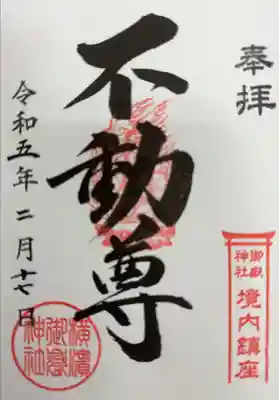 奉拝
御嶽神社 境内鎮座
不動尊
令和五年 二月十七日
横濱御嶽神社